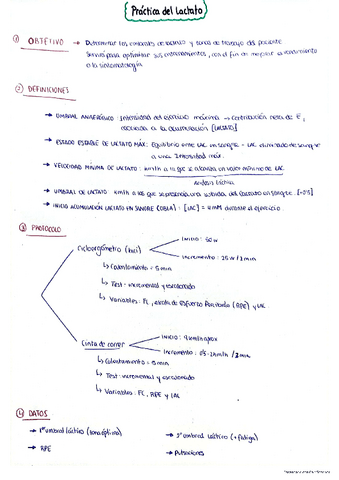 Práctica del Lactato
① OBJETIVO → Determinar los umbrales de lactato y zonas de trabajo del paciente
Servirá para optimizar sus entrenamientos, con el fin de mejorar el rendimiento
o la sintomatología
② DEFINICIONES
→ UMBRAL ANAERÓBICO: Intensidad del ejercicio máxima → contribución neta de E,
asociada a la acumulación [LACTATO]
→ ESTADO ESTABLE DE LACTATO MÁX: Equilibrio entre LAC en sangre = LAC eliminado de sangre
a una Intensidad máx.
→ VELOCIDAD MÁXIMA DE LACTATO: km/h a la que se alcanza un valor máximo de LAC
Acidosis láctica
→ UMBRAL DE LACTATO: km/h a los que se produce una subida del lactato en sangre
→ INICIO ACUMULACIÓN LACTATO EN SANGRE (OBLA): [LAC] = 4 mM durante el ejercicio.
③ PROTOCOLO
Cicloergómetro (bici)
INICIO: 50 W
Incremento: 25 W / 2 min
↳ Calentamiento = 5 min
↳ Test = incremental y escalonado
↳ Variables: FC, escala de Esfuerzo Percibido (RPE) y LAC
Cinta de correr
INICIO:
Incremento: 0'5-1 km/h / 2 min
↳ Calentamiento = 5 min
↳ Test: incremental y escalonado
↳ Variables: FC, RPE y LAC
④ DATOS
→ 1º umbral láctico (zona óptima)
→ 2º umbral láctico (+ fatiga)
→ RPE
→ Pulsaciones